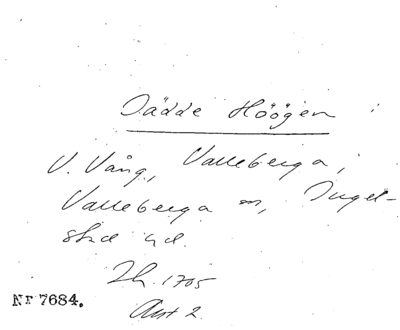 Dädde Höögen i
V. Vång, Valleberga,
Valleberga sn, Ingel-
stad hd.
Lh. 1705
Avst 2
Nr 7684.